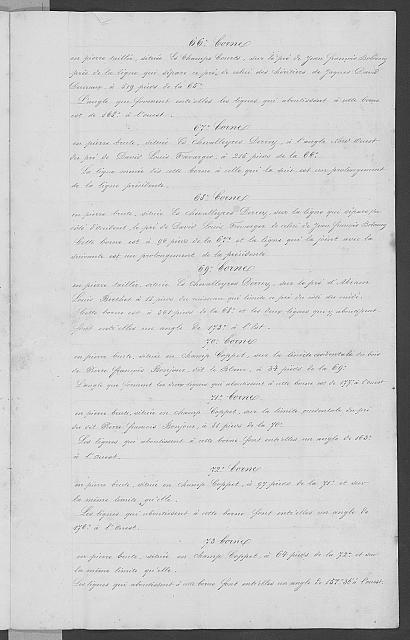 66e Borne
en pierre taillée, située Es Champs Courts, sur le pré de Jean François
près de la ligne qui sépare ce pré, de celui des héritiers de Jaques David
à 519 pieds de la 65e
L'angle que forment entr'elles les lignes qui aboutissent à cette borne
est de 165° à l'ouest.
67e Borne
en pierre brute, située Es Chevalleyres Derrey, à l'angle Nord Ouest
du pré de David Louis Favarger, à 256 pieds de la 66e
La ligne menée dès cette borne à celle qui la suit est un prolongement
de la ligne précédente.
68e Borne
en pierre brute, située Es Chevalleyres Derrey, sur la ligne qui sépare du
côté d'Occident le pré de David Louis Favarger de celui de Jean François
Cette borne est à 96 pieds de la 67e et la ligne qui la joint avec la
suivante est un prolongement de la précédente.
69e Borne
en pierre taillée, située Es Chevalleyres Derrey, sur le pré d'Abram
Louis à 15 pieds du ruisseau qui limite ce pré du côté du midi.
Cette borne est à 361 pieds de la 68e et les deux lignes qui y aboutissent
font entr'elles un angle de 173° à l'Est.
70e Borne
en pierre brute, située en Champ Coppet, sur la limite occidentale du bas
de Pierre François Bonjour, dit le Blanc, à 34 pieds de la 69e
L'angle que forment les deux lignes qui aboutissent à cette borne est de 178° à l'ouest
71e Borne
en pierre brute, située en Champ Coppet, sur la limite occidentale du pré
du dit Pierre François Bonjour, à 51 pieds de la 70e
Les lignes qui aboutissent à cette borne font entr'elles un angle de 163°
à l'Ouest.
72e Borne
en pierre brute, située en Champ Coppet, à 97 pieds de la 71e et sur
la même limite qu'elle.
Les lignes qui aboutissent à cette borne font entr'elles un angle de
176° à l'Ouest.
73 Borne
en pierre brute, située en Champ Coppet, à 64 pieds de la 72e et sur
la même limite qu'elle.
Les lignes qui aboutissent à cette borne font entr'elles un angle de 157° 30 à l'ouest.